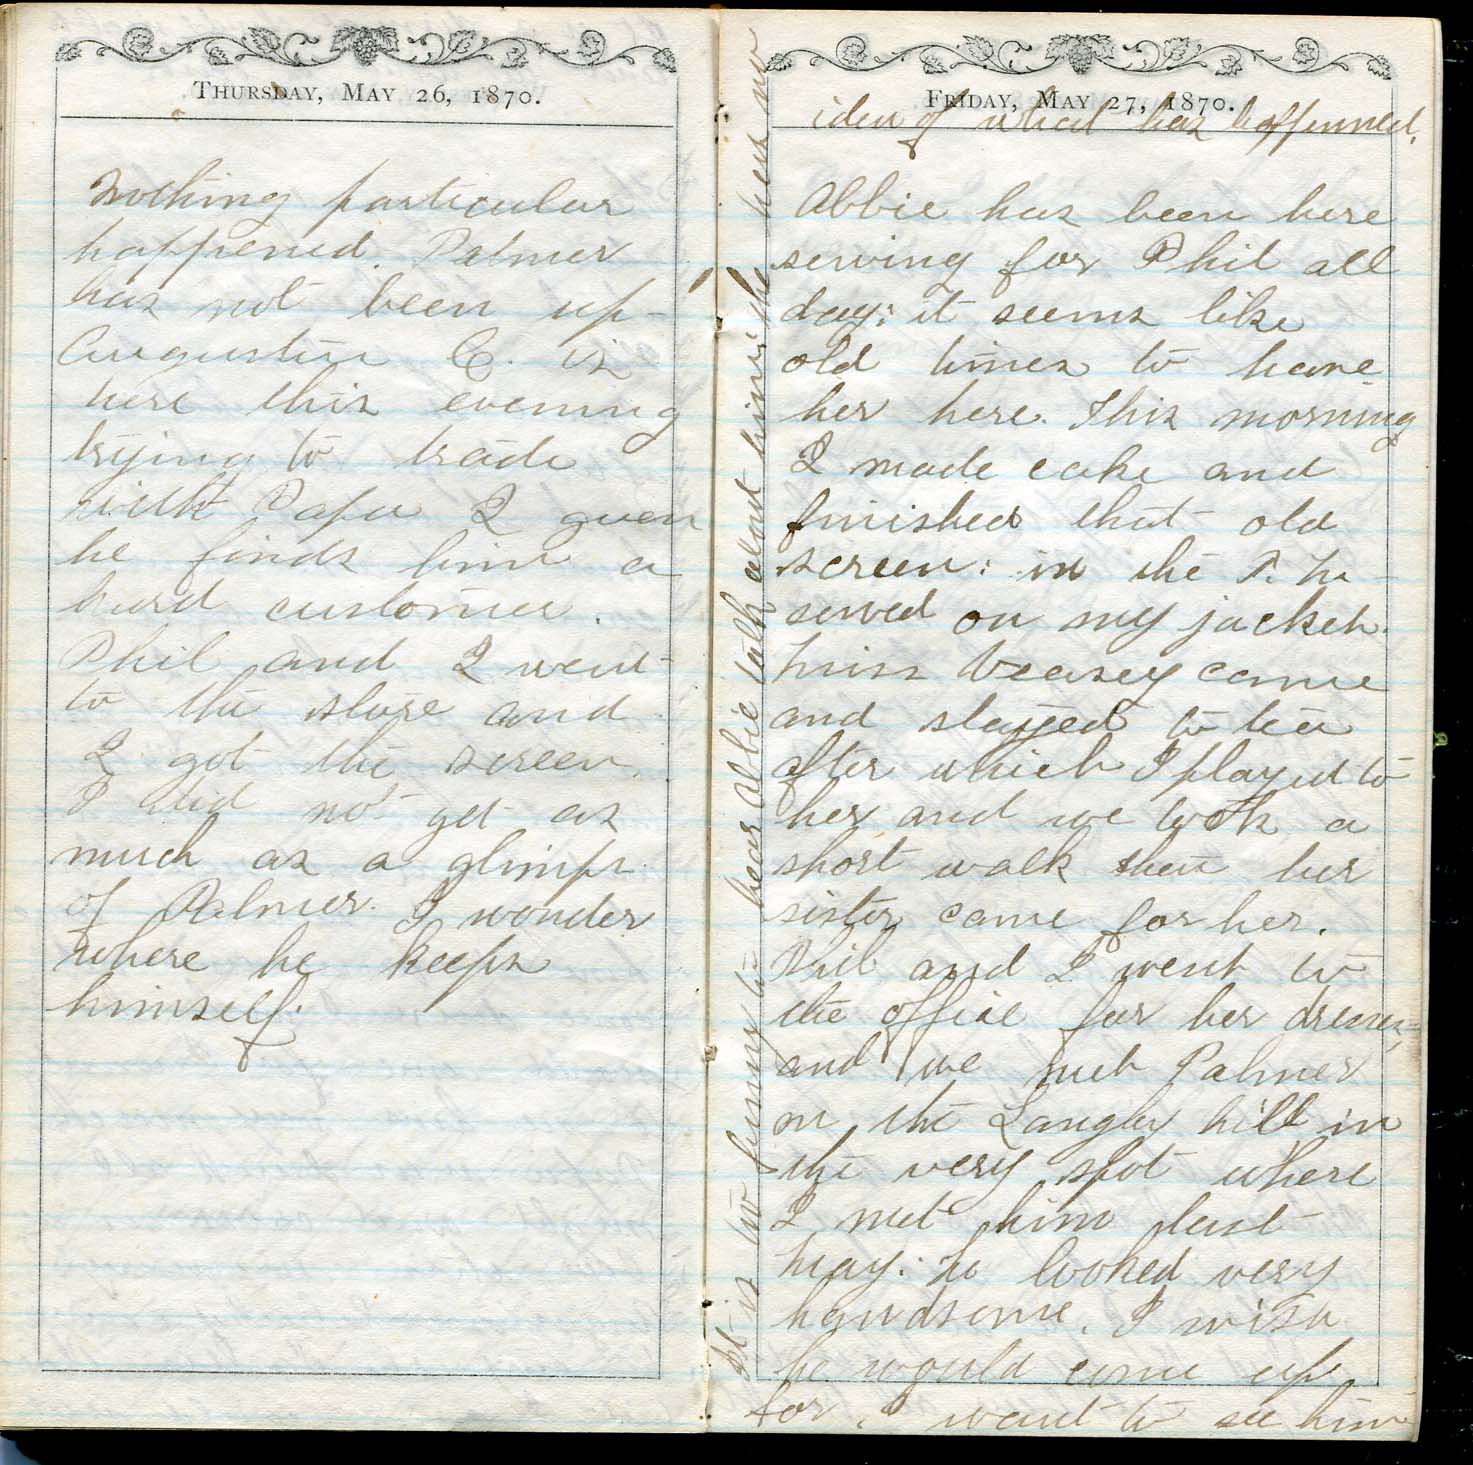 THURSDAY, MAY 26, 1870.
Nothing particular
happened. Palmer
has not been up-
Augustin C. is
here this evening
trying to trade
with Papa I guess
he finds him a
hard customer.
Phil and I went
to the store and
I got the screen.
I did not get as
much as a glimps
of Palmer. I wonder
where he keeps
himself.
FRIDAY, MAY 27, 1870.
Abbie has been here
sewing for Phil all
day: it seems like
old times to have
her here. This morning
I made cake and
finished that old
screen: in the P. M.
sewed on my jacket.
Miss Veasey came
and stayed to tea
after which I played to
her and we took a
short walk then her
sister came for her.
Phil and I went to
the office for her dresses,
and we met Palmer
on the Langley hill in
the very spot where
I met him last
May: he looked very
handsome. I wish
he would come up
for I want to see him
It is too funny to hear Abbie talk about him: she hears no
idea of what has happenned.